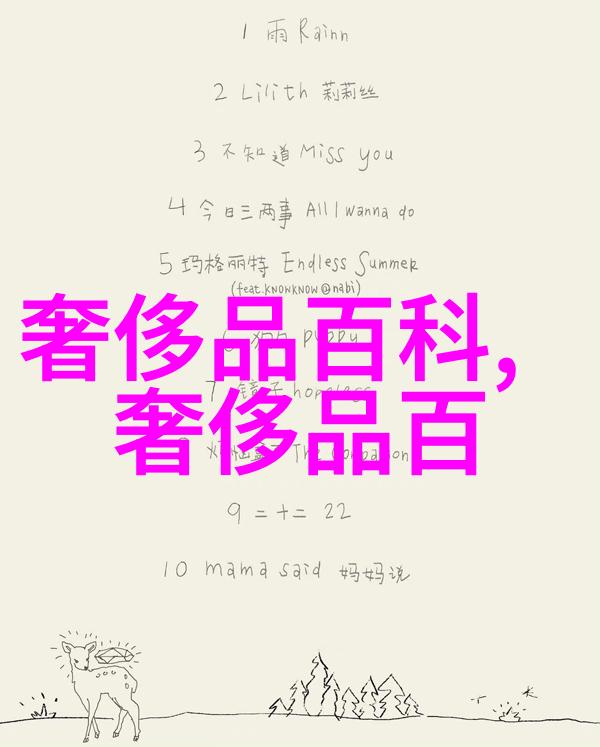 1 雨 Rainn
2 Lilith 莉莉丝
3 不知道 Miss you
4 今日三两事 All I wanna do
5 玛格丽特 Endless Summer
(feat.KNOWKNOW@nabi)
puppy
奢侈品百科,
7 镜子 hopeless
奢侈品百
The
9 二十二 22
10 mama said 妈妈说